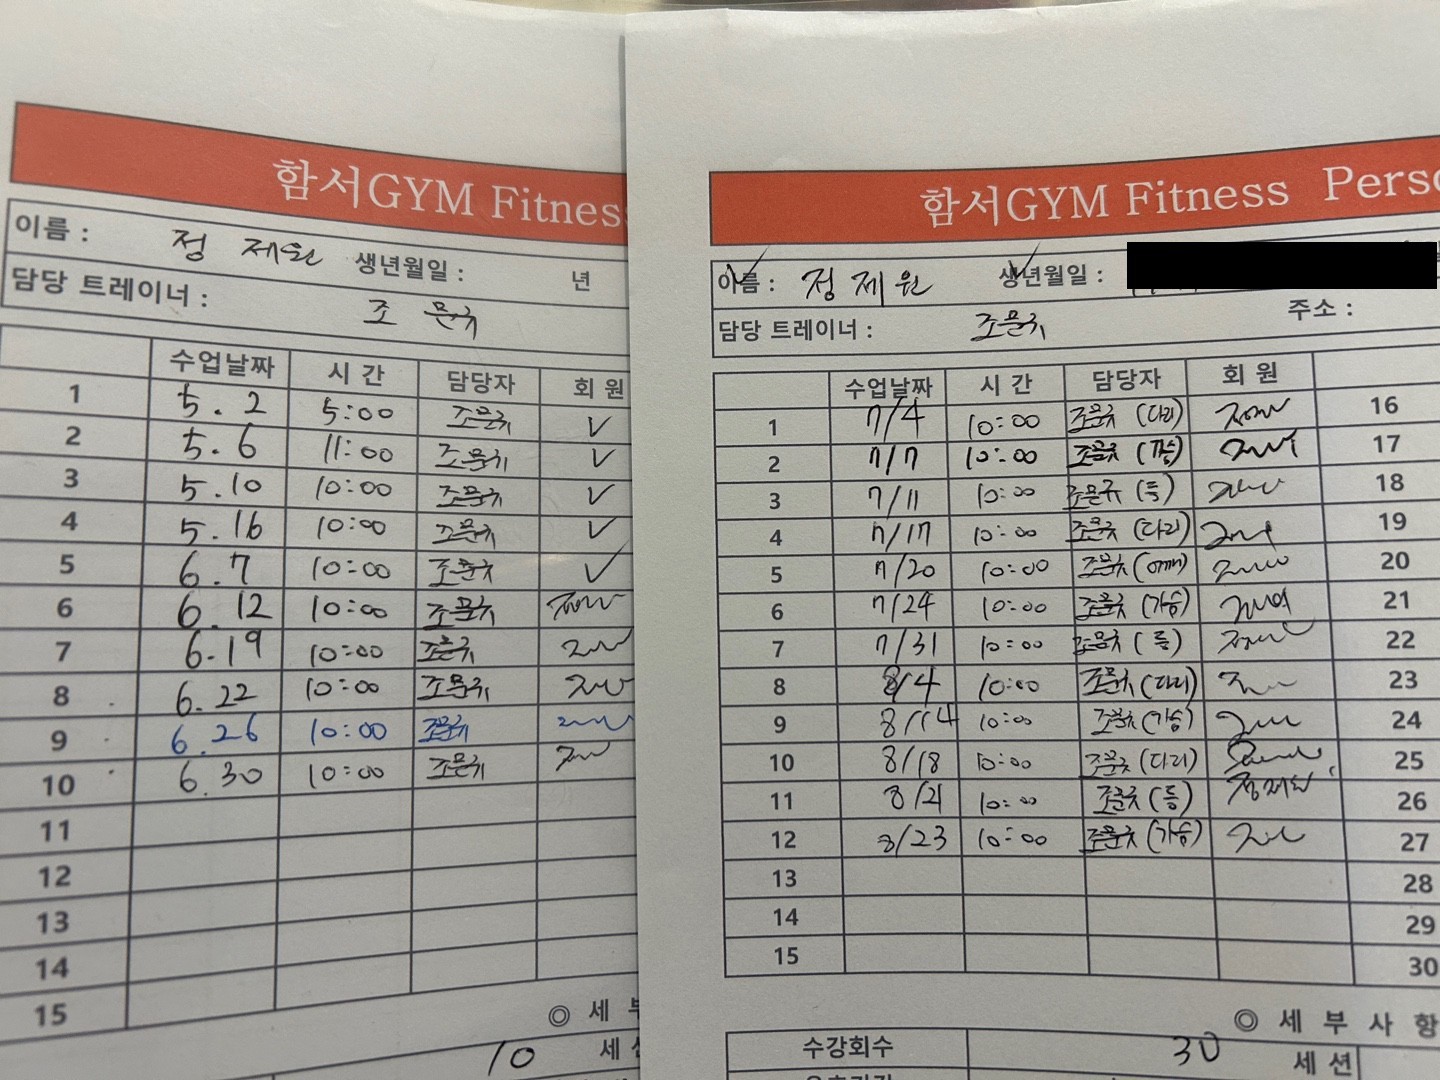 함서GYM Fitnes
이름 : 정 제원 생년월일 : 년
담당 트레이너 : 조문
수업날짜 시 간 담당자 회 원
1 5. 2 5:00 조문 ✓
2 5. 6 11:00 조문 ✓
3 5.10 10:00 조문 ✓
4 5.16 10:00 조문 ✓
5 6.7 10:00 조문 ✓
6 6.12 10:00 조문
7 6.19 10:00 조문
8 6.22 10:00 조문
9 6.26 10:00 조문
10 6.30 10:00 조문
11
12
13
14
15
◎ 세 부
10 세
함서GYM Fitness Perso
이름 : 정제원 생년월일 :
담당 트레이너 : 조문 주소 :
수업날짜 시 간 담당자 회 원
1 7/4 10:00 조문 (다리) 16
2 7/7 10:00 조문 (가슴) 17
3 7/11 10:00 조문 (등) 18
4 7/17 10:00 조문 (다리) 19
5 7/20 10:00 조문 (어깨) 20
6 7/24 10:00 조문 (가슴) 21
7 7/31 10:00 조문 (등) 22
8 8/4 10:00 조문 (다리) 23
9 8/14 10:00 조문 (가슴) 24
10 8/18 10:00 조문 (다리) 25
11 8/21 10:00 조문 (등) 정제원 26
12 8/23 10:00 조문 (가슴) 27
13 28
14 29
15 30
◎ 세 부 사 항
수강회수 30 세션